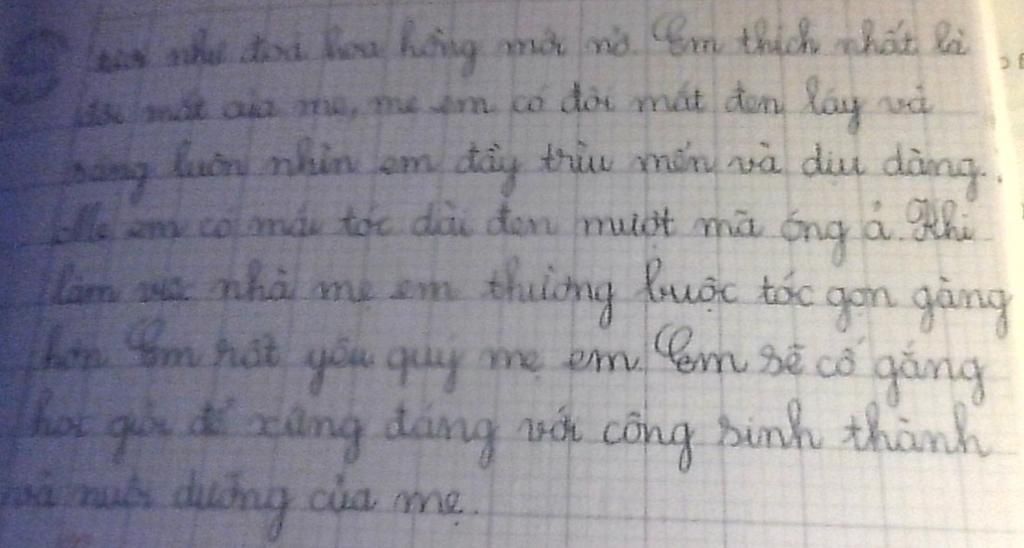 như đoá hoa hồng mới nở. Em thích nhất là
đôi mắt của mẹ, mẹ em có đôi mắt đen láy và
sáng luôn nhìn em đầy trìu mến và dịu dàng.
Mẹ em có mái tóc dài đen mượt mã óng ả. Khi
làm việc nhà mẹ em thường buộc tóc gọn gàng
hơn Em rất yêu quý mẹ em. Em sẽ cố gắng
học giỏi để xứng đáng với công sinh thành
và nuôi dưỡng của mẹ.